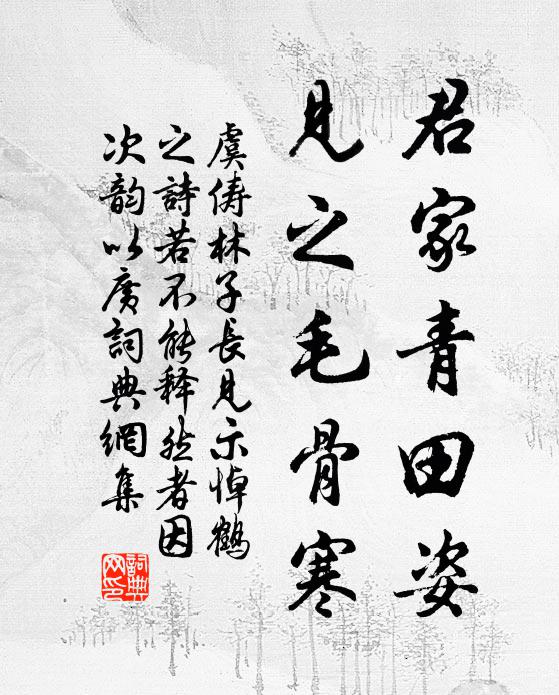 君家青田姿
見之毛骨寒
虞俦林子長見示悼鶴
之詩若不能释然者因
次韵以广詞典網集
詞典
网印